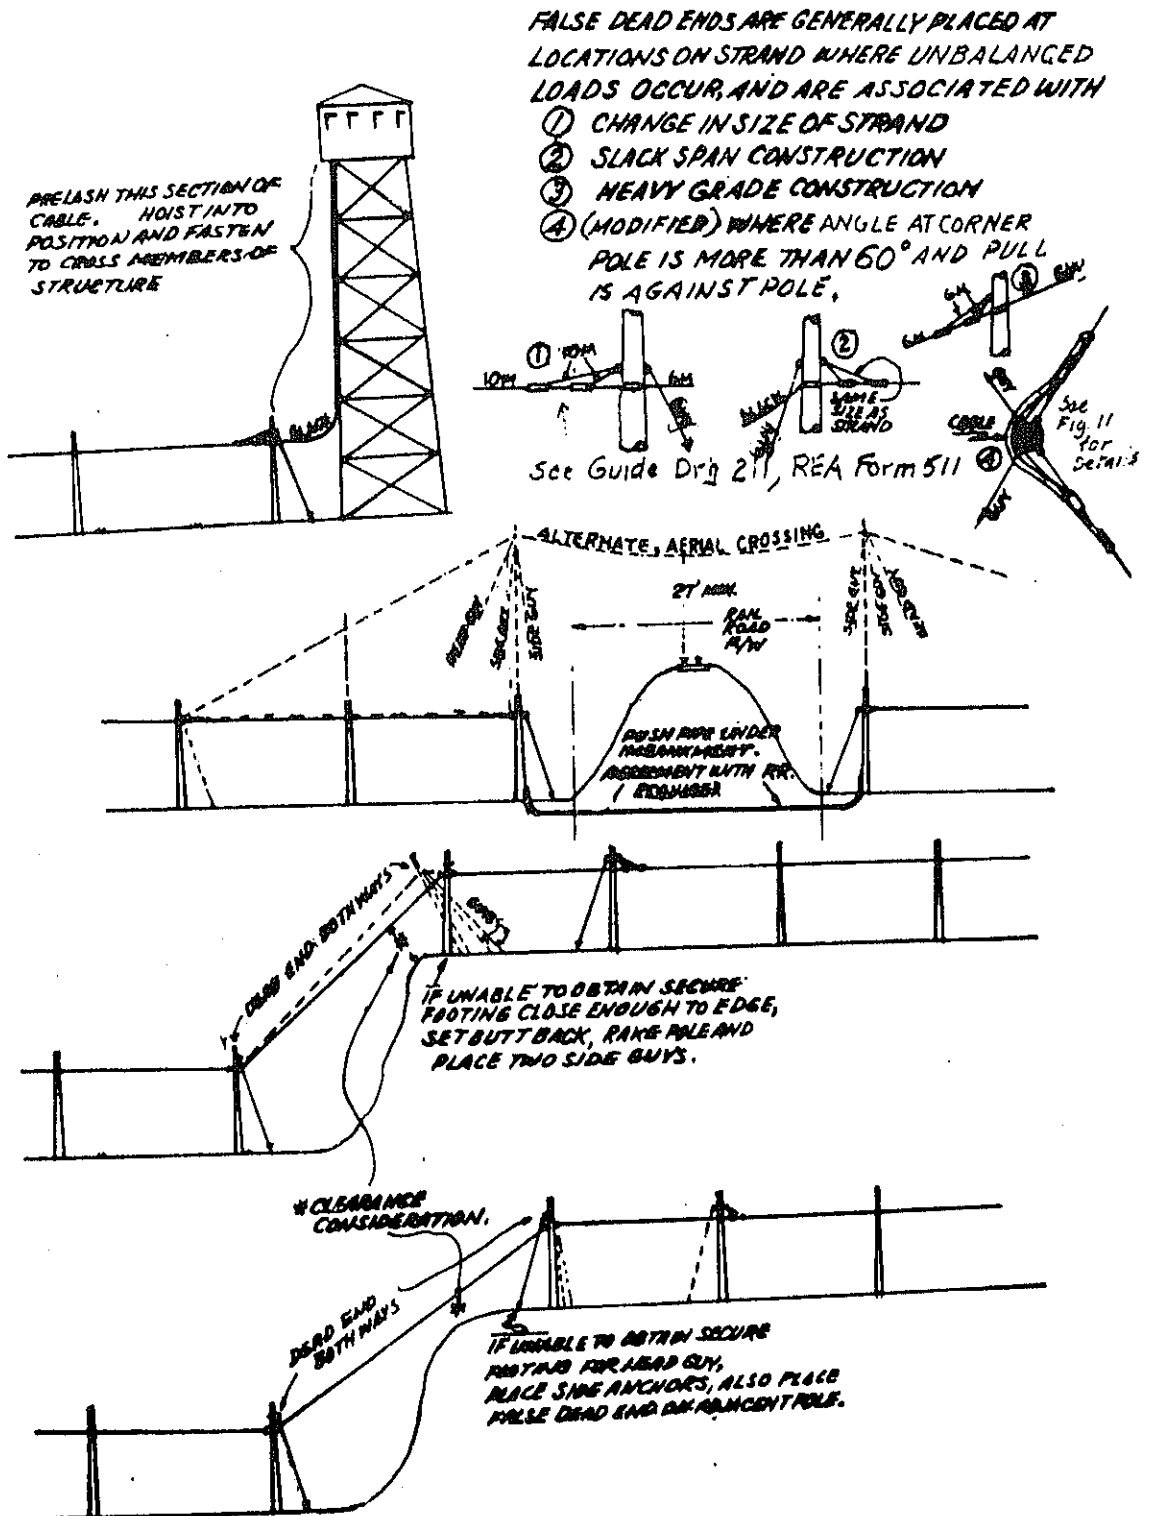 FALSE DEAD ENDS ARE GENERALLY PLACED AT
LOCATIONS ON STRAND WHERE UNBALANCED
LOADS OCCUR, AND ARE ASSOCIATED WITH
① CHANGE IN SIZE OF STRAND
② SLACK SPAN CONSTRUCTION
③ HEAVY GRADE CONSTRUCTION
④ (MODIFIED) WHERE ANGLE AT CORNER
POLE IS MORE THAN 60° AND PULL
IS AGAINST POLE.
PRELASH THIS SECTION OF
CABLE. HOIST INTO
POSITION AND FASTEN
TO CROSS MEMBERS OF
STRUCTURE
SLACK
①
10M
10M
6M
GUY
②
SLACK
GUY
SAME
SIZE AS
STRAND
③
6M
6M
6M
GUY
CABLE
④
GUY
See
Fig. 11
for
Details
See Guide Drg 211, REA Form 511
ALTERNATE, AERIAL CROSSING
27' MIN.
RAIL
ROAD
R/W
HEAD GUY
SIDE GUY
SIDE GUY
SIDE GUY
SIDE GUY
HEAD GUY
PUSH PIPE UNDER
EMBANKMENT.
AGREEMENT WITH RR.
REQUIRED
DEAD END BOTH WAYS
GUYS
*
IF UNABLE TO OBTAIN SECURE
FOOTING CLOSE ENOUGH TO EDGE,
SET BUTT BACK, RAKE POLE AND
PLACE TWO SIDE GUYS.
* CLEARANCE
CONSIDERATION.
DEAD END
BOTH WAYS
*
IF UNABLE TO OBTAIN SECURE
FOOTING FOR HEAD GUY,
PLACE SIDE ANCHORS, ALSO PLACE
FALSE DEAD END ON ADJACENT POLE.